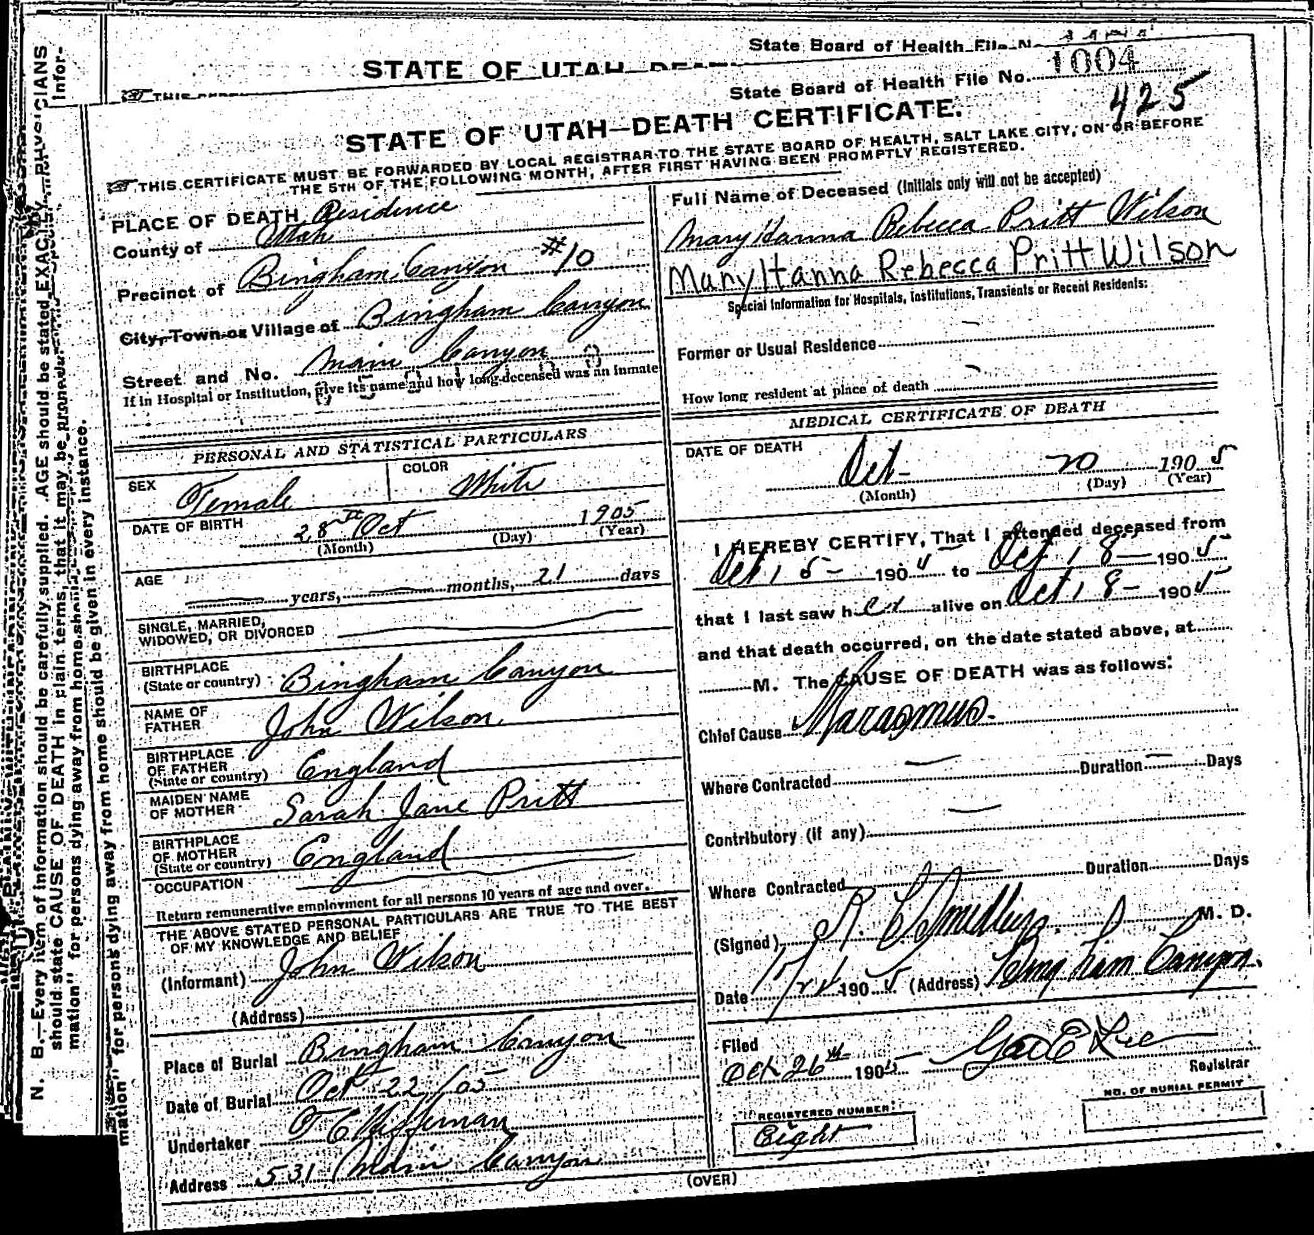 State Board of Health File N
STATE OF UTAH
State Board of Health File No. 1004
425
STATE OF UTAH—DEATH CERTIFICATE.
THIS CERTIFICATE MUST BE FORWARDED BY LOCAL REGISTRAR TO THE STATE BOARD OF HEALTH, SALT LAKE CITY, ON OR BEFORE
THE 5TH OF THE FOLLOWING MONTH, AFTER FIRST HAVING BEEN PROMPTLY REGISTERED.
PLACE OF DEATH Residence
County of Utah
Precinct of Bingham Canyon #10
City, Town or Village of Bingham Canyon
Street and No. Main Canyon
If in Hospital or Institution, give its name and how long deceased was an inmate
PERSONAL AND STATISTICAL PARTICULARS
SEX Female COLOR White
DATE OF BIRTH 28 Oct 1905
(Month) (Day) (Year)
AGE years, months, 21 days
SINGLE, MARRIED,
WIDOWED, OR DIVORCED
BIRTHPLACE
(State or country) Bingham Canyon
NAME OF
FATHER John Wilson
BIRTHPLACE
OF FATHER
(State or country) England
MAIDEN NAME
OF MOTHER Sarah Jane Pritt
BIRTHPLACE
OF MOTHER
(State or country) England
OCCUPATION
Return remunerative employment for all persons 10 years of age and over.
THE ABOVE STATED PERSONAL PARTICULARS ARE TRUE TO THE BEST
OF MY KNOWLEDGE AND BELIEF
(Informant) John Wilson
(Address)
Place of Burial Bingham Canyon
Date of Burial Oct 22/05
Undertaker
Address 531 Main Canyon
Full Name of Deceased (Initials only will not be accepted)
Mary Hanna Rebecca Pritt Wilson
Mary Hanna Rebecca Pritt Wilson
Special Information for Hospitals, Institutions, Transients or Recent Residents:
Former or Usual Residence
How long resident at place of death
MEDICAL CERTIFICATE OF DEATH
DATE OF DEATH
Oct 20 1905
(Month) (Day) (Year)
I HEREBY CERTIFY, That I attended deceased from
Oct 15 1905 to Oct 18 1905
that I last saw her alive on Oct 18 1905
and that death occurred, on the date stated above, at
M. The CAUSE OF DEATH was as follows:
Chief Cause Marasmus.
Where Contracted Duration Days
Contributory (if any)
Where Contracted Duration Days
(Signed) M. D.
Date 1905 (Address) Bingham Canyon.
Filed
Oct 26th 1905 Geo E Lee
Registrar
REGISTERED NUMBER:
Eight
NO. OF BURIAL PERMIT
(OVER)
N. B.—Every item of information should be carefully supplied. AGE should be stated EXACTLY. PHYSICIANS
should state CAUSE OF DEATH in plain terms, that it may be
mation" for persons dying away from home should be given in every instance.